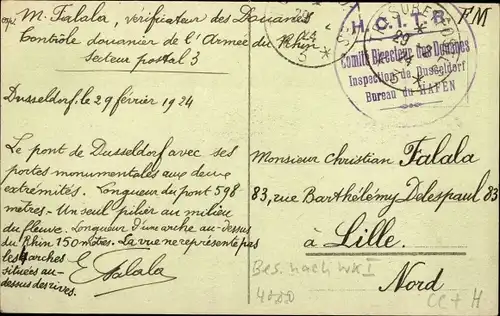 M. Falala, vérificateur des Douanes
Contrôle douanier de l'Armée du Rhin
Secteur postal 3
FM
H.C.I.T.R.
Comité Directeur des Douanes
Inspection de Dusseldorf
Bureau du HAFEN
29
Dusseldorf, le 29 février 1924
Le pont de Dusseldorf avec ses
portes monumentales aux deux
extrémités. Longueur du pont 598
mètres - Un seul pilier au milieu
du fleuve. Longueur d'une arche au-dessus
du Rhin 150 mètres. La vue ne représente pas
les 4 arches
situées au-
dessus des rives.
E. Falala
Monsieur Christian Falala
83, rue Barthélémy Delespaul 83
à Lille
Nord
Bes. nach WK I